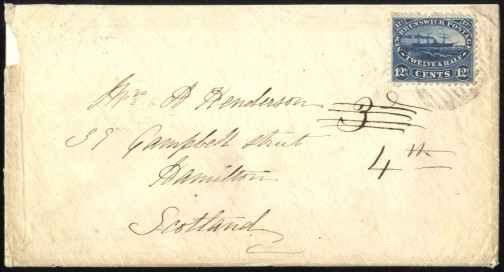 12½ 12½
NEW BRUNSWICK POSTAGE
TWELVE & HALF
12½ CENTS 12½
Mrs A Henderson
39 Campbell street
Hamilton
Scotland
3d
4th